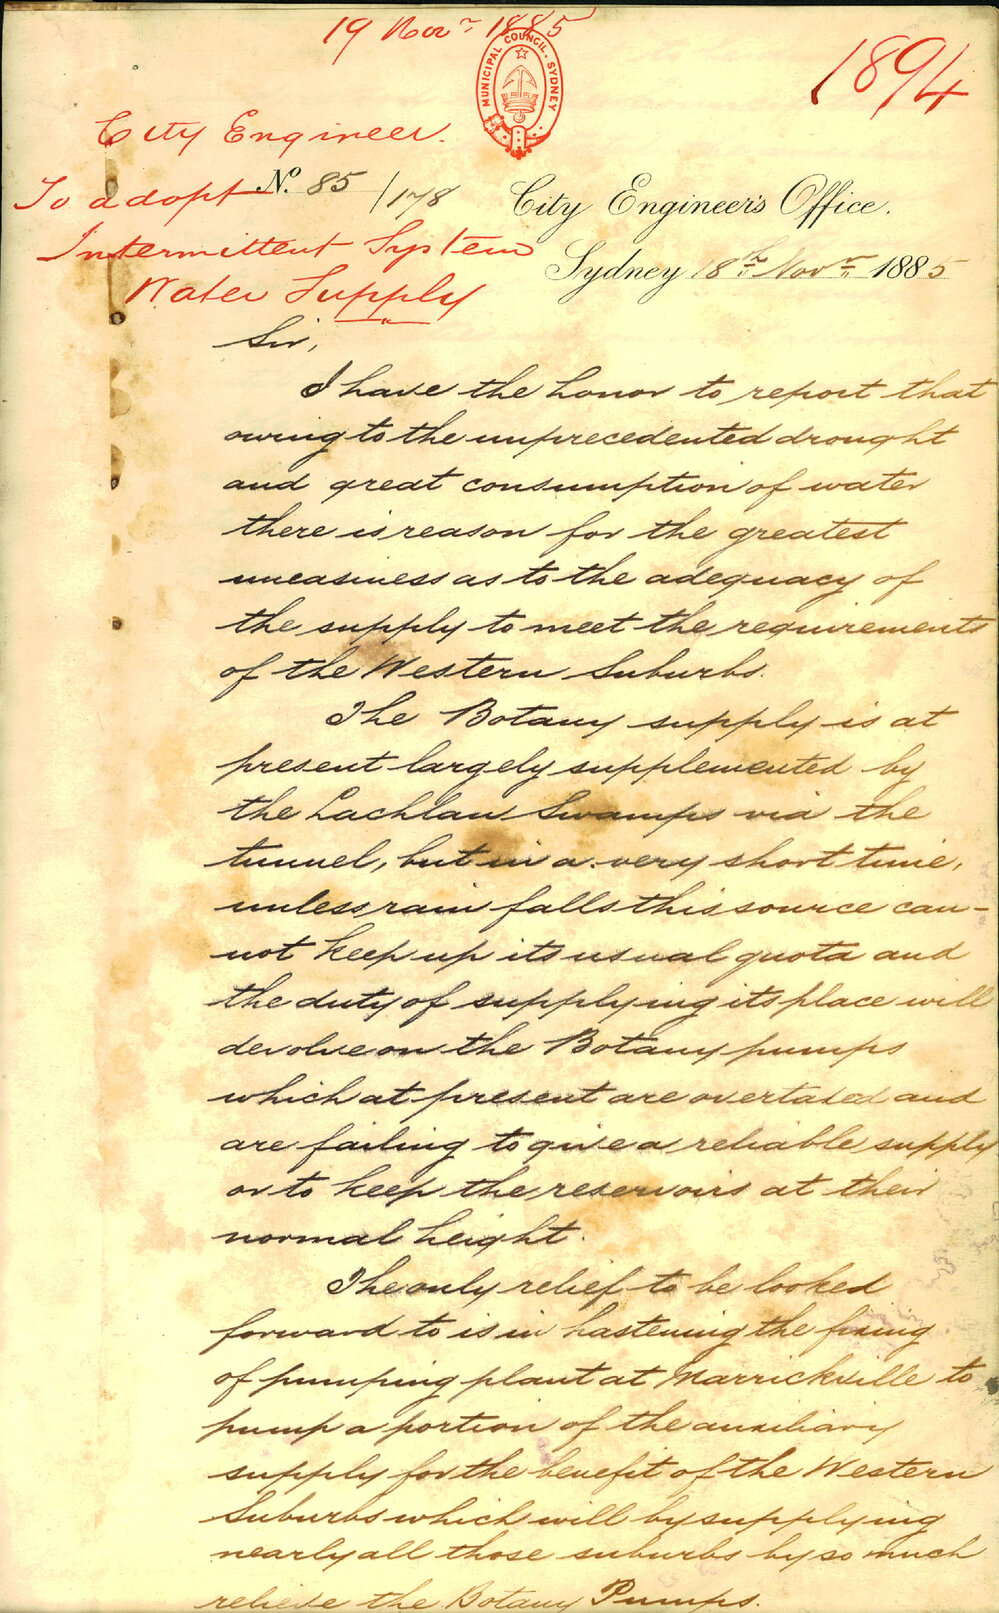 19 Novr 1885
MUNICIPAL COUNCIL. SYDNEY
1894
City Engineer.
To adopt
Intermittent System
Water Supply
No. 85/178
City Engineer's Office.
Sydney 18th Novr 1885
Sir,
I have the honor to report that
owing to the unprecedented drought
and great consumption of water
there is reason for the greatest
uneasiness as to the adequacy of
the supply to meet the requirements
of the Western Suburbs.
The Botany supply is at
present largely supplemented by
the Lachlan Swamps via the
tunnel, but in a very short time,
unless rain falls this source can-
not keep up its usual quota and
the duty of supplying its place will
devolve on the Botany pumps
which at present are overtaxed and
are failing to give a reliable supply
or to keep the reservoirs at their
normal height.
The only relief to be looked
forward to is in hastening the fixing
of pumping plant at Marrickville to
pump a portion of the auxiliary
supply for the benefit of the Western
Suburbs which will by supplying
nearly all those suburbs by so much
relieve the Botany Pumps.